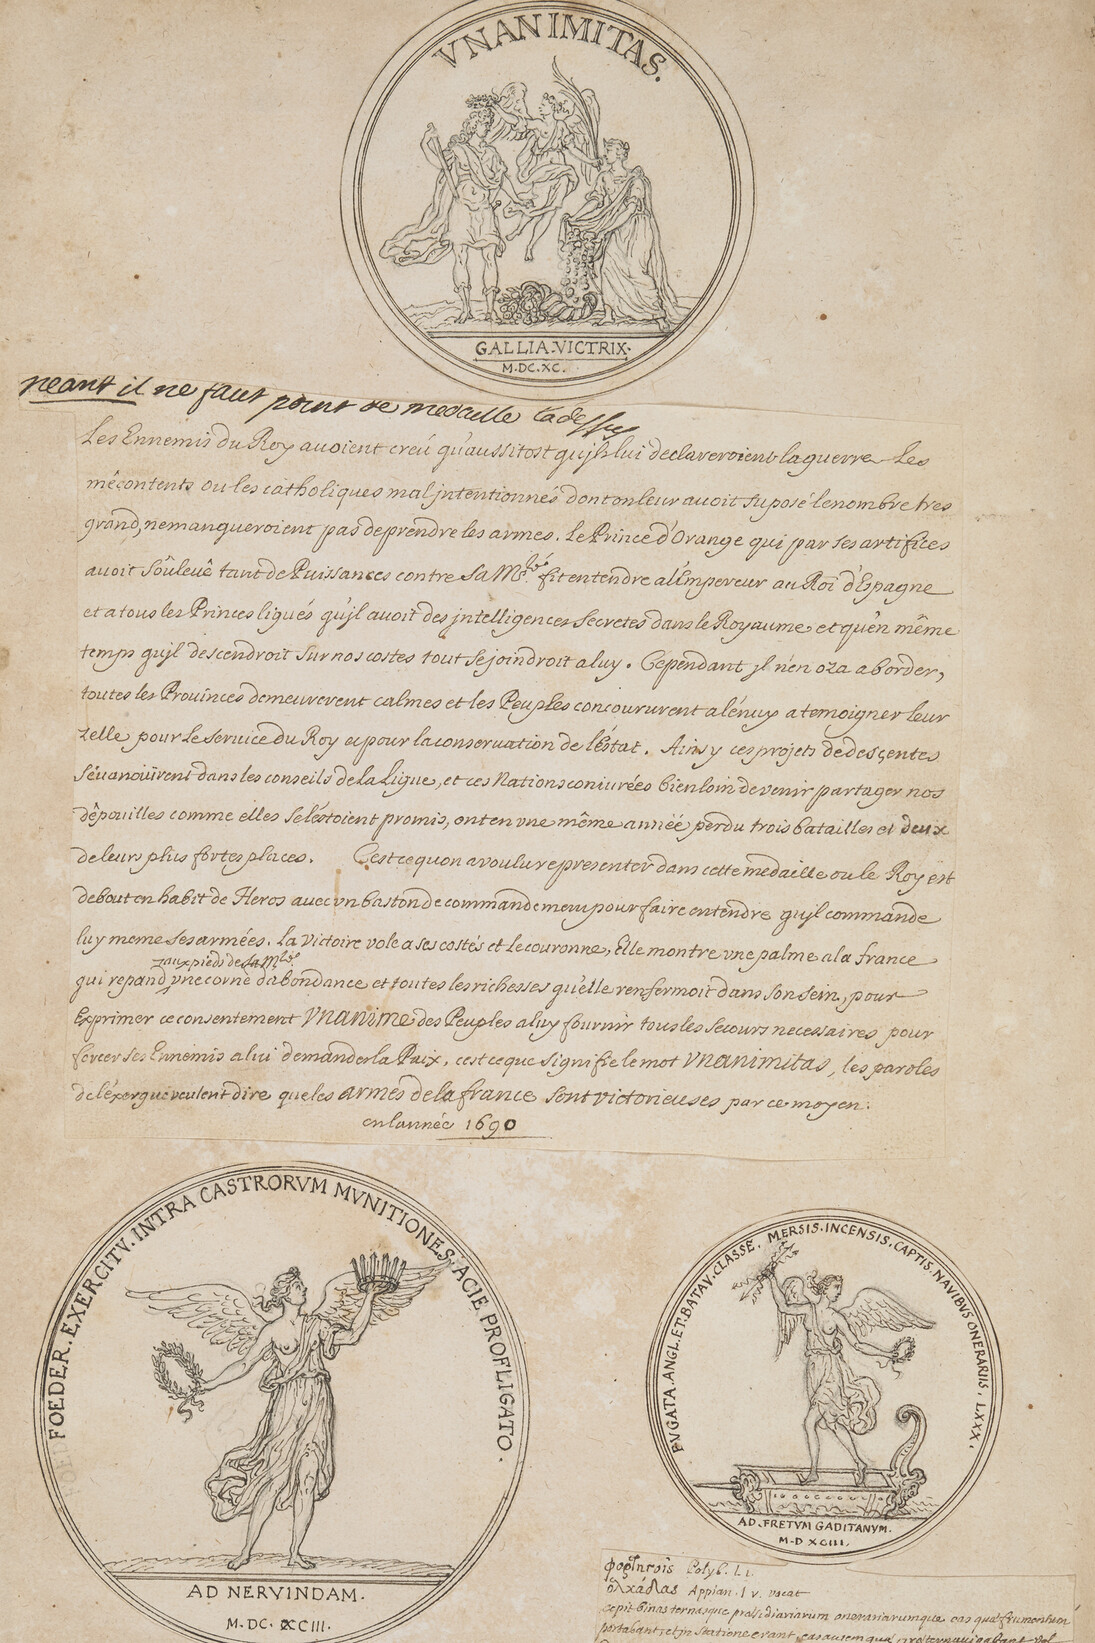 VNANIMITAS.
GALLIA.VICTRIX.
M.DC.XC.
neant il ne faut point de medaille la dessus
Les Ennemis du Roy avoient creu qu'aussitost qu'jls lui declareroient la guerre Les
mêcontents ou les catholiques mal jntentionnés dont on leur avoit suposé le nombre tres
grand, ne manqueroient pas de prendre les armes. Le Prince d'Orange qui par ses artifices
avoit soulevé tant de Puissances contre sa M.té fit entendre a l'Empereur au Roi d'Espagne
et a tous les Princes ligués qu'jl avoit des jntelligences secretes dans le Royaume et qu'en même
temps qu'jl descendroit sur nos costes tout se joindroit a luy. Cependant jl n'en oza aborder,
toutes les Provinces demeurerent calmes et les Peuples concoururent a lénvy a temoigner leur
zelle pour le service du Roy et pour la conservation de l'éstat. Ainsy ces projets de desçentes
s'évanoüirent dans les conseils de la Ligue, et ces Nations conjurées bien loin de venir partager nos
dépouilles comme elles se l'éstoient promis, ont en vne même année perdu trois batailles et deux
de leurs plus fortes places. C'est ce quon a voulu representer dans cette medaille ou le Roy est
debout en habit de Heros avec vn baston de commandement pour faire entendre qu'jl commande
luy meme ses armées. La Victoire vole a ses costés et le couronne, Elle montre vne palme a la france
aux pieds de sa M.té
qui repand vne corne d'abondance et toutes les richesses qu'elle renfermoit dans son sein, pour
Exprimer ce consentement Vnanime des Peuples a luy fournir tous les secours necessaires pour
forcer ses Ennemis a lui demander la Paix, c'est ce que signifie le mot Vnanimitas, les paroles
de l'éxergue veulent dire que les armes de la france sont victorieuses par ce moyen.
en lannée 1690
FOEDER. EXERCITV. INTRA CASTRORVM MVNITIONES, ACIE PROFLIGATO.
AD NERVINDAM.
M.DC.XCIII.
PVGATA.ANGL.ET.BATAV.CLASSE. MERSIS.INCENSIS.CAPTIS.NAVIBVS ONERARIIS. LXXX.
AD.FRETVM GADITANVM.
M.D XCIII.
Polyb. l.1.
ὁλκάδας Appian. l v. vocat
cepit binas ternasque præsidiariarum onerariarumque eas quæ frumentum
portabant, et jn statione erant